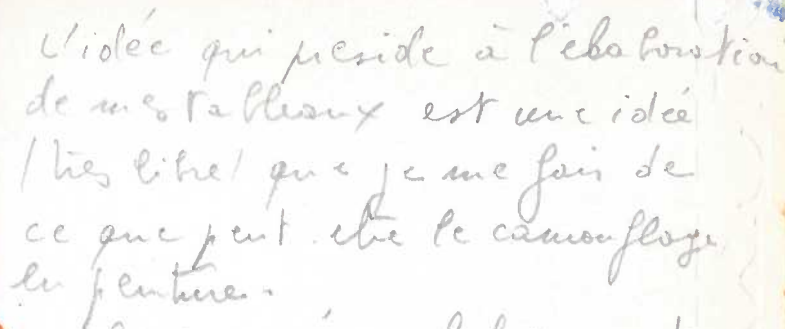 L'idée qui préside à l'élaboration
de mes tableaux est une idée
/très libre/ que je me fais de
ce que peut être le camouflage
en peinture.